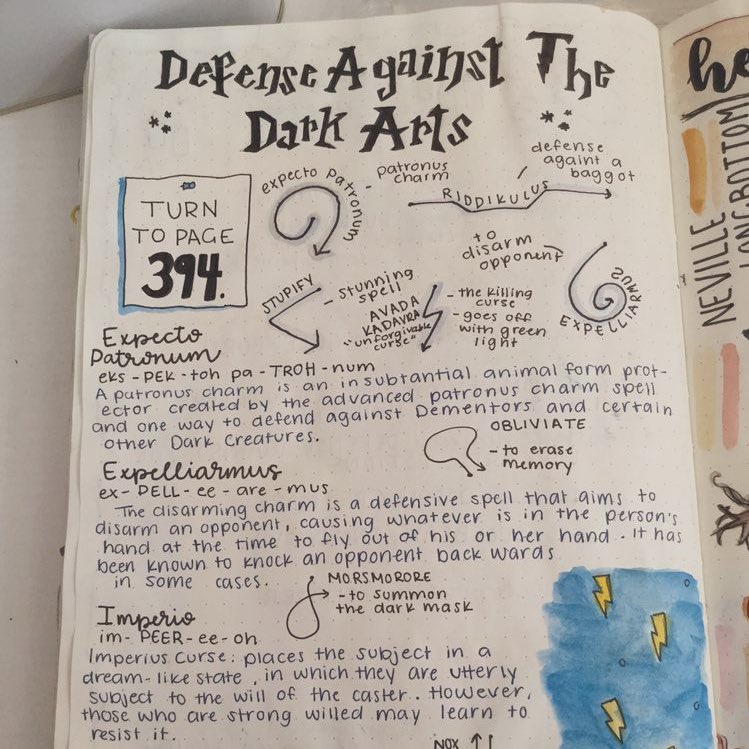 Defense Against The
Dark Arts
TURN
TO PAGE
394.
expecto patronum
- patronus
charm
RIDDIKULUS
defense
againt a
baggot
STUPIFY
- stunning
spell
AVADA
KADAVRA
"unforgivable
curse"
- the killing
curse
- goes off
with green
light
to
disarm
opponent
EXPELLIARMUS
Expecto
Patronum
eks - PEK - toh pa - TROH - num
A patronus charm is an insubstantial animal form prot-
ector created by the advanced patronus charm spell
and one way to defend against Dementors and certain
other Dark Creatures.
OBLIVIATE
- to erase
memory
Expelliarmus
ex - PELL - ee - are - mus
The disarming charm is a defensive spell that aims to
disarm an opponent, causing whatever is in the person's
hand at the time to fly out of his or her hand. It has
been known to knock an opponent back wards
in some cases.
MORSMORORE
- to summon
the dark mask
Imperio
im - PEER - ee - oh
Imperius Curse: places the subject in a
dream-like state, in which they are utterly
subject to the will of the caster. However,
those who are strong willed may learn to
resist it.
NOX
he
NEVILLE
LONGBOTTOM